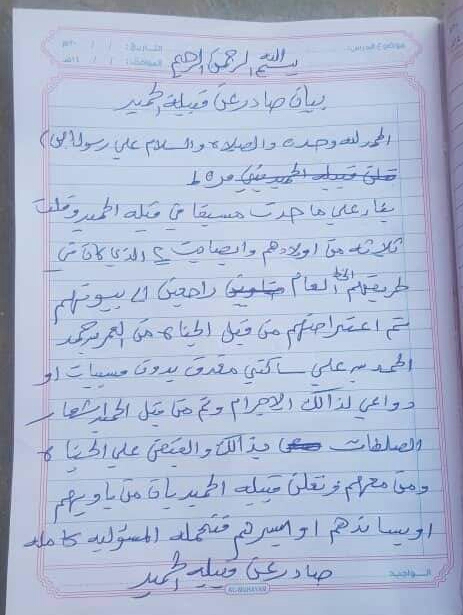 موضوع الدرس: التاريخ: / / ٢٠م
الموافق: / / ١٤هـ
بسم الله الرحمن الرحيم
بيان صادر عن قبيلة الحميد
الحمد لله وحده والصلاة والسلام علي رسول الله
تعلن قبيله الحميد
علي ما حدث مسبقا من قبله الحميد وقلت
ثلاثه من اولادهم واصابت ٢ الذي كان في
طريقهم الخط العام راجعين الى بيوتهم
تم اعتراضهم من قبل الجناه من العمر بن حمد
الحمد بن علي ساكني مفرق بدون مسببات او
دواعي لذالك الاجرام وتم من قبل الحميد اشعار
الصلطات بذالك والقبض علي الجناه
ومن معهم وتعلن قبيله الحميد بان من ياويهم
او يساندهم او ييسرهم فتحمله المسؤليه كامله
صادر عن قبيله الحميد
الواجب: